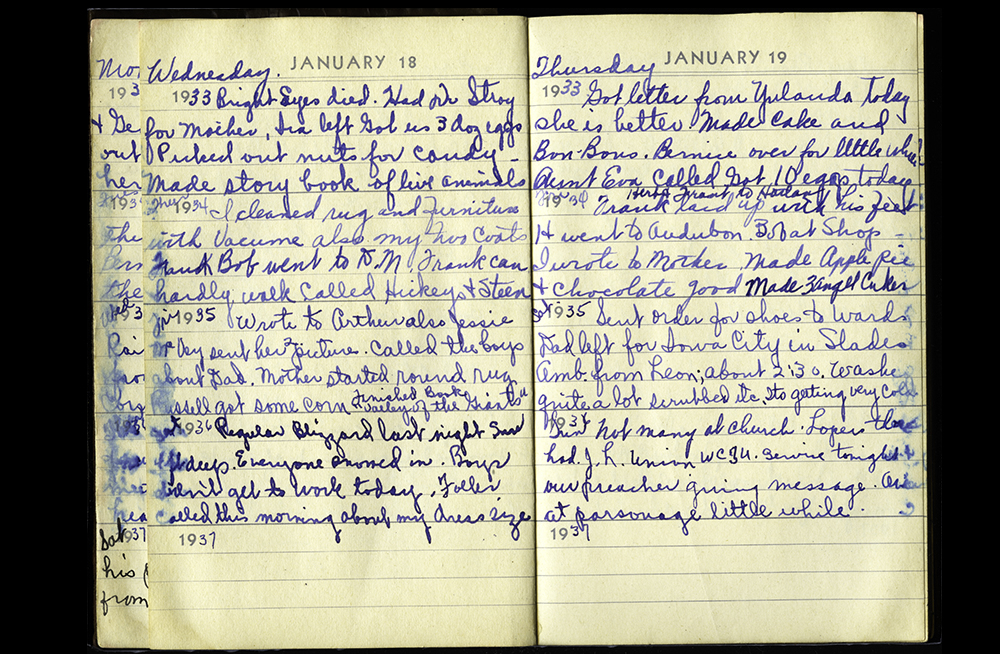 Mo
193
& Ge
out
her
the
the
Rai
Sat
1937
his
from
Wednesday. JANUARY 18
1933 Bright Eyes died. Had Dr Stroy
for Mother, Ira left Got us 3 doz eggs
Picked out nuts for candy -
Made story book of live animals
1934 I cleaned rug and furniture
with Vacume also my two Coats
Frank Bob went to D.M. Frank can
hardly walk Called Hickeys & Steen
1935 Wrote to Arthur also Jessie
sent her picture. Called the boys
about Dad. Mother started round rug
Russell got some corn Finished Book
Valley of the Giants
1936 Regular Blizzard last night Snow
deep. Everyone snowed in. Boys
didn't get to work today.
Called this morning about my dress size
1937
Thursday JANUARY 19
1933 Got letter from Yulanda Today
she is better Made Cake and
Bon-Bons. Bernice over for little while
Aunt Eva Called Got 10 eggs today
Frank to Harlan
1934 Frank laid up with his feet
H went to Audubon. Bob at Shop -
I wrote to Mother Made Apple Pie
& Chocolate good Made 3 Angel Cakes
Sat 1935 Sent order for shoes to Wards
Dad left for Iowa City in Slades
Amb. from Leon, about 2:30. Washed
quite a lot scrubbed etc. Its getting very cold
Sun 1936 Not many at church. Lopers
had. Union WCTU. Service tonight
our preacher giving message.
at parsonage little while.
1937